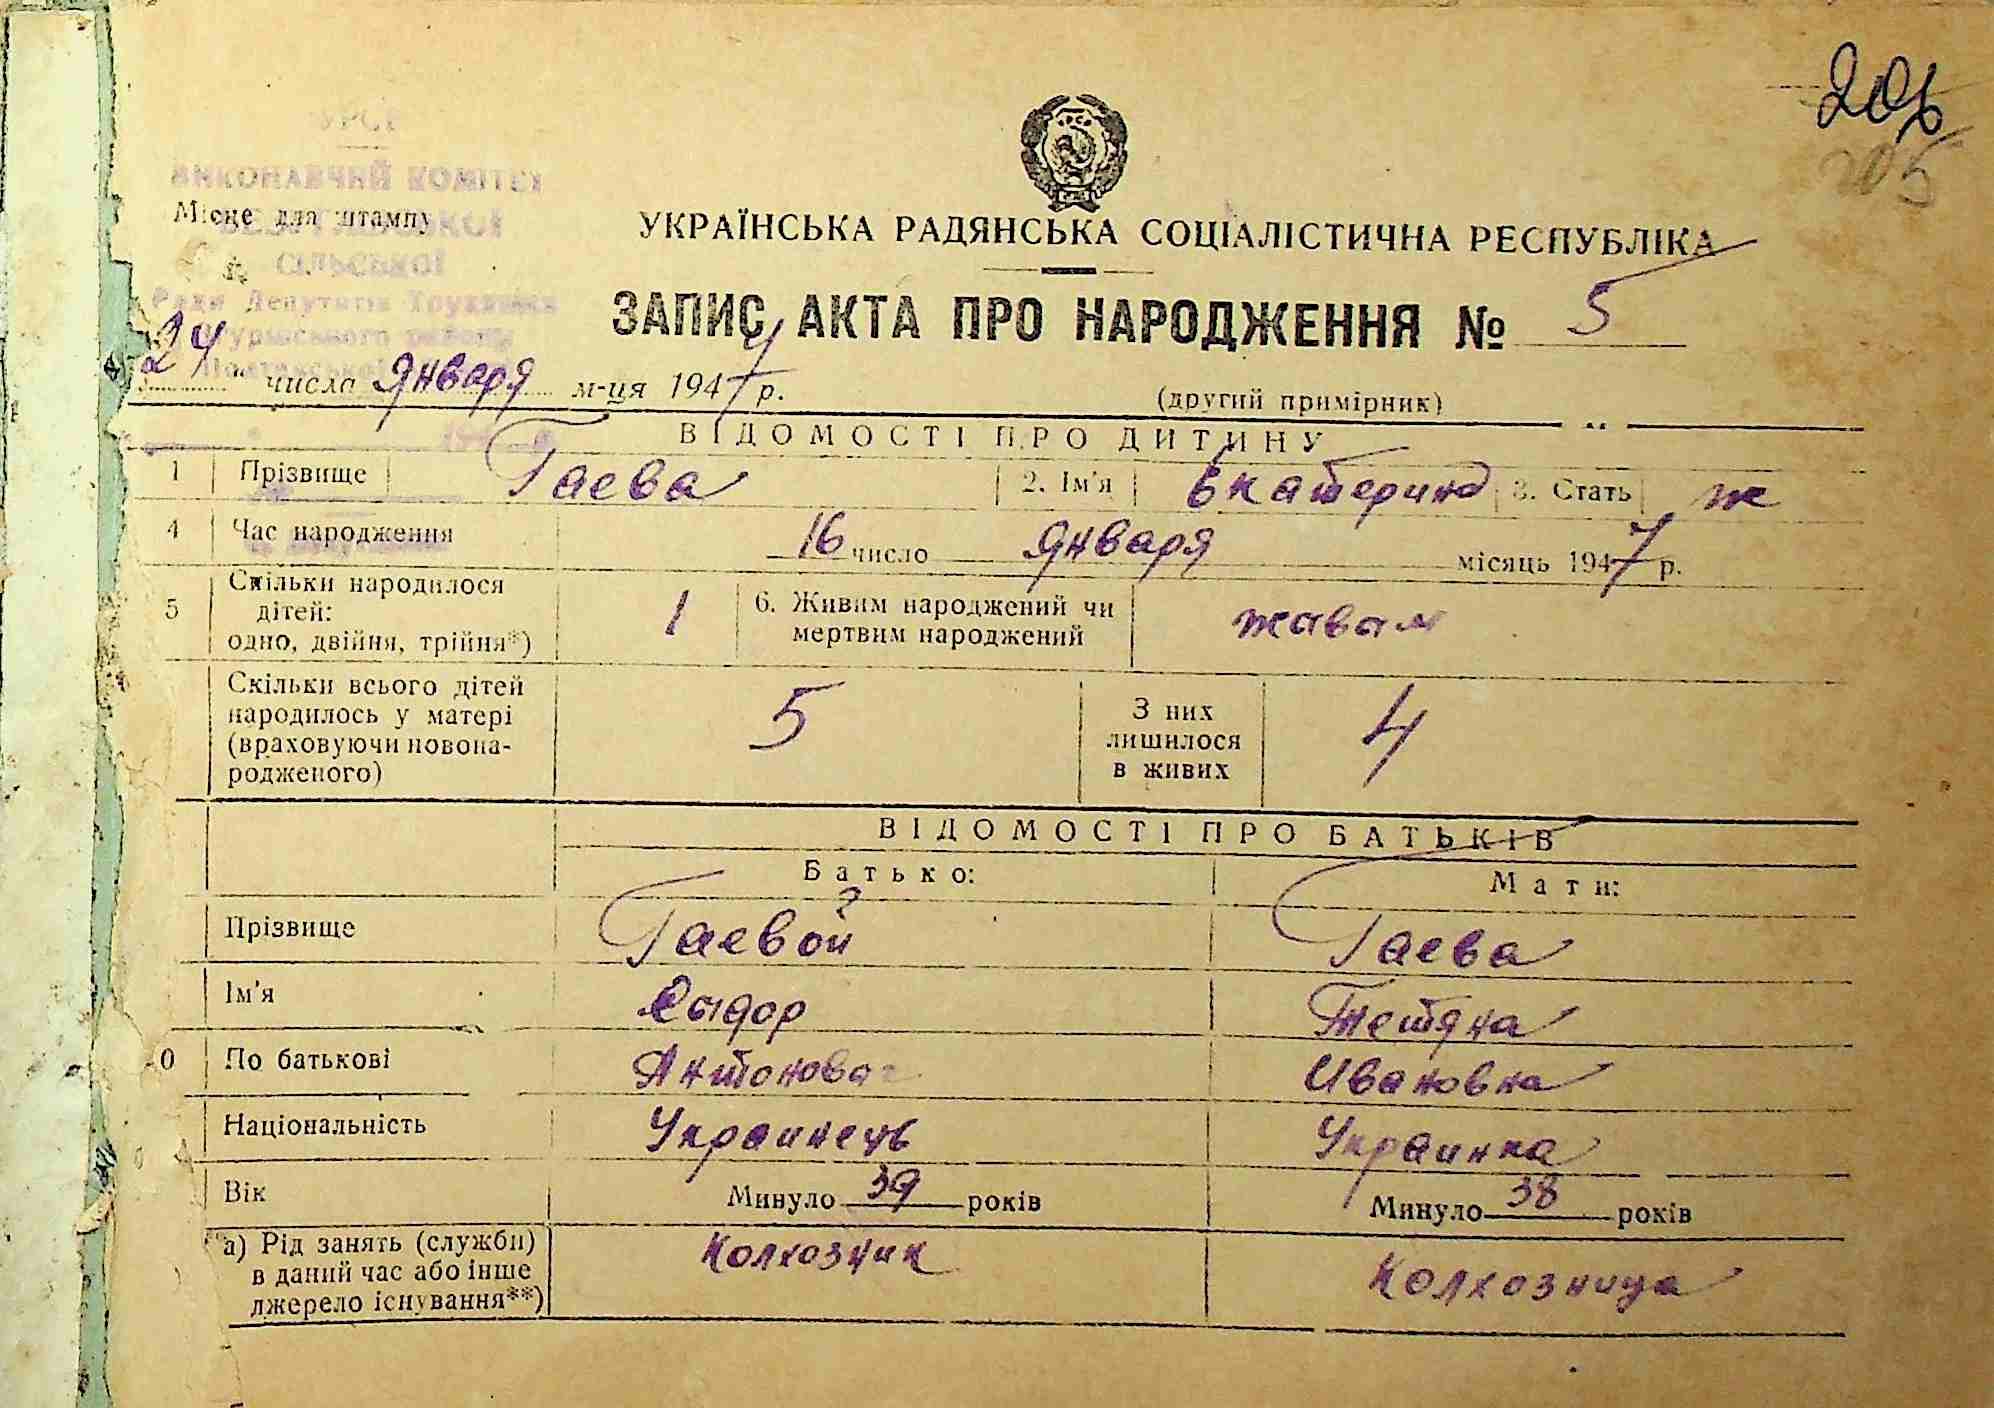 206
205
УРСР
ВИКОНАВЧИЙ КОМІТЕТ
Місце для штампу
СІЛЬСЬКОЇ
Ради Депутатів Трудящих
району
УКРАЇНСЬКА РАДЯНСЬКА СОЦІАЛІСТИЧНА РЕСПУБЛІКА
ЗАПИС АКТА ПРО НАРОДЖЕННЯ № 5
24 " числа января м-ця 1947 р.
(другий примірник)
ВІДОМОСТІ ПРО ДИТИНУ
1 Прізвище Гаева 2. Ім'я Екатерина 3. Стать ж
4 Час народження 16 число января місяць 1947 р.
5 Скільки народилося дітей: одно, двійня, трійня*) 1 6. Живим народжений чи мертвим народжений жавам
Скільки всього дітей народилось у матері (враховуючи новона-родженого) 5 З них лишилося в живих 4
ВІДОМОСТІ ПРО БАТЬКІВ
Батько: Мати:
Прізвище Гаевой Гаева
Ім'я Сыдор Тетяна
0 По батькові Антонова Ивановна
Національність Украинець Украинка
Вік Минуло 39 років Минуло 38 років
а) Рід занять (служби) в даний час або інше джерело існування**) Колхозник Колхозница